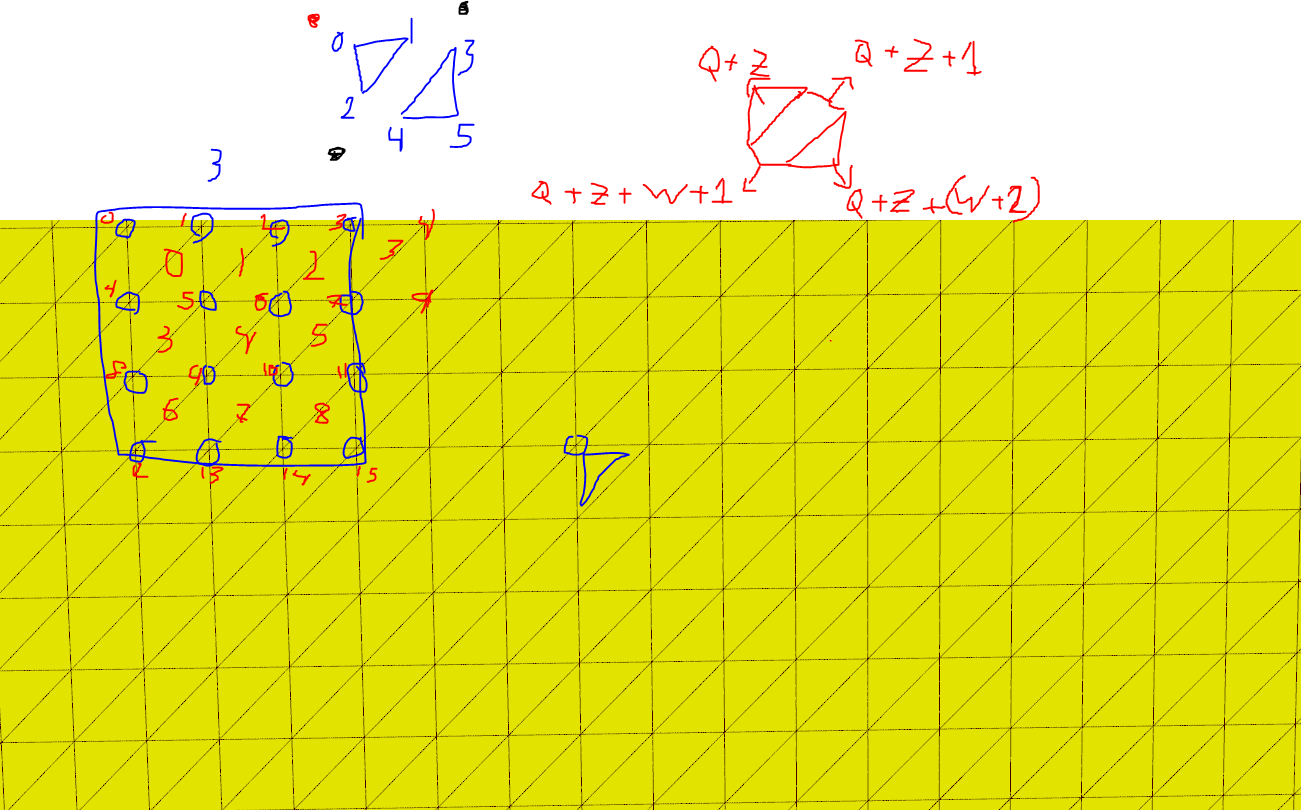 0 1 3
2 4 5
Q+Z Q+Z+1
Q+Z+W+1 Q+Z+(W+2)
3
0 1 2 3 4
0 1 2 3
4 5 6 7
3 4 5
8 9 10 11
6 7 8
12 13 14 15